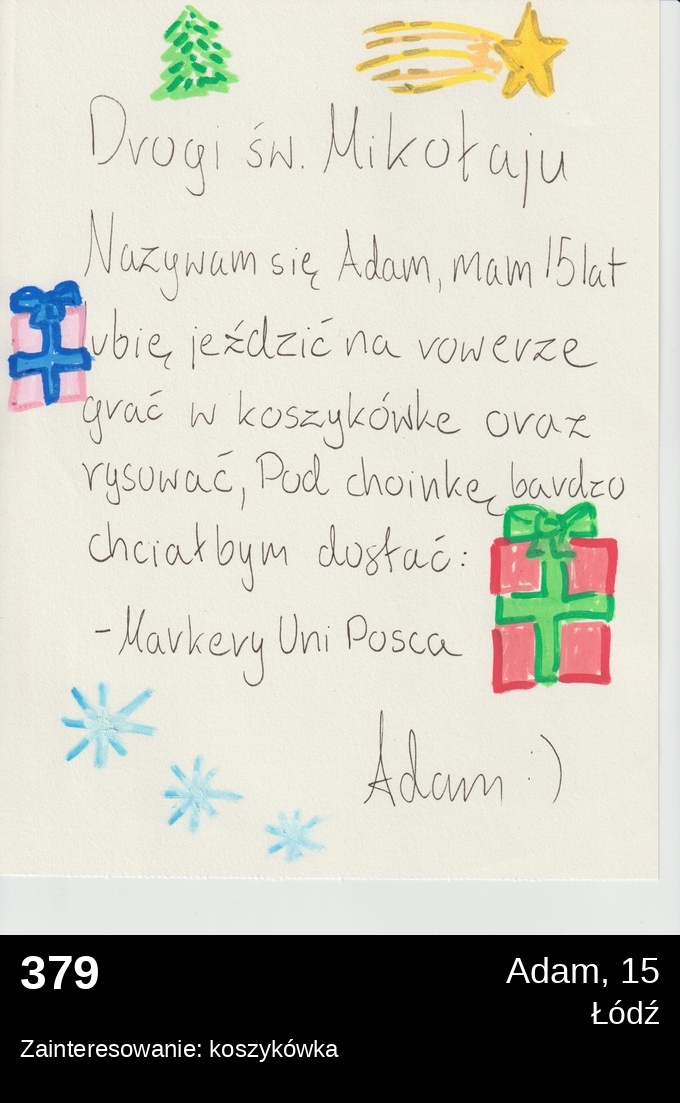 Drogi św. Mikołaju
Nazywam się Adam, mam 15 lat
lubię jeździć na rowerze
grać w koszykówke oraz
rysować, Pod choinkę bardzo
chciałbym dostać:
-Markery Uni Posca
Adam :)
379
Adam, 15
Łódź
Zainteresowanie: koszykówka